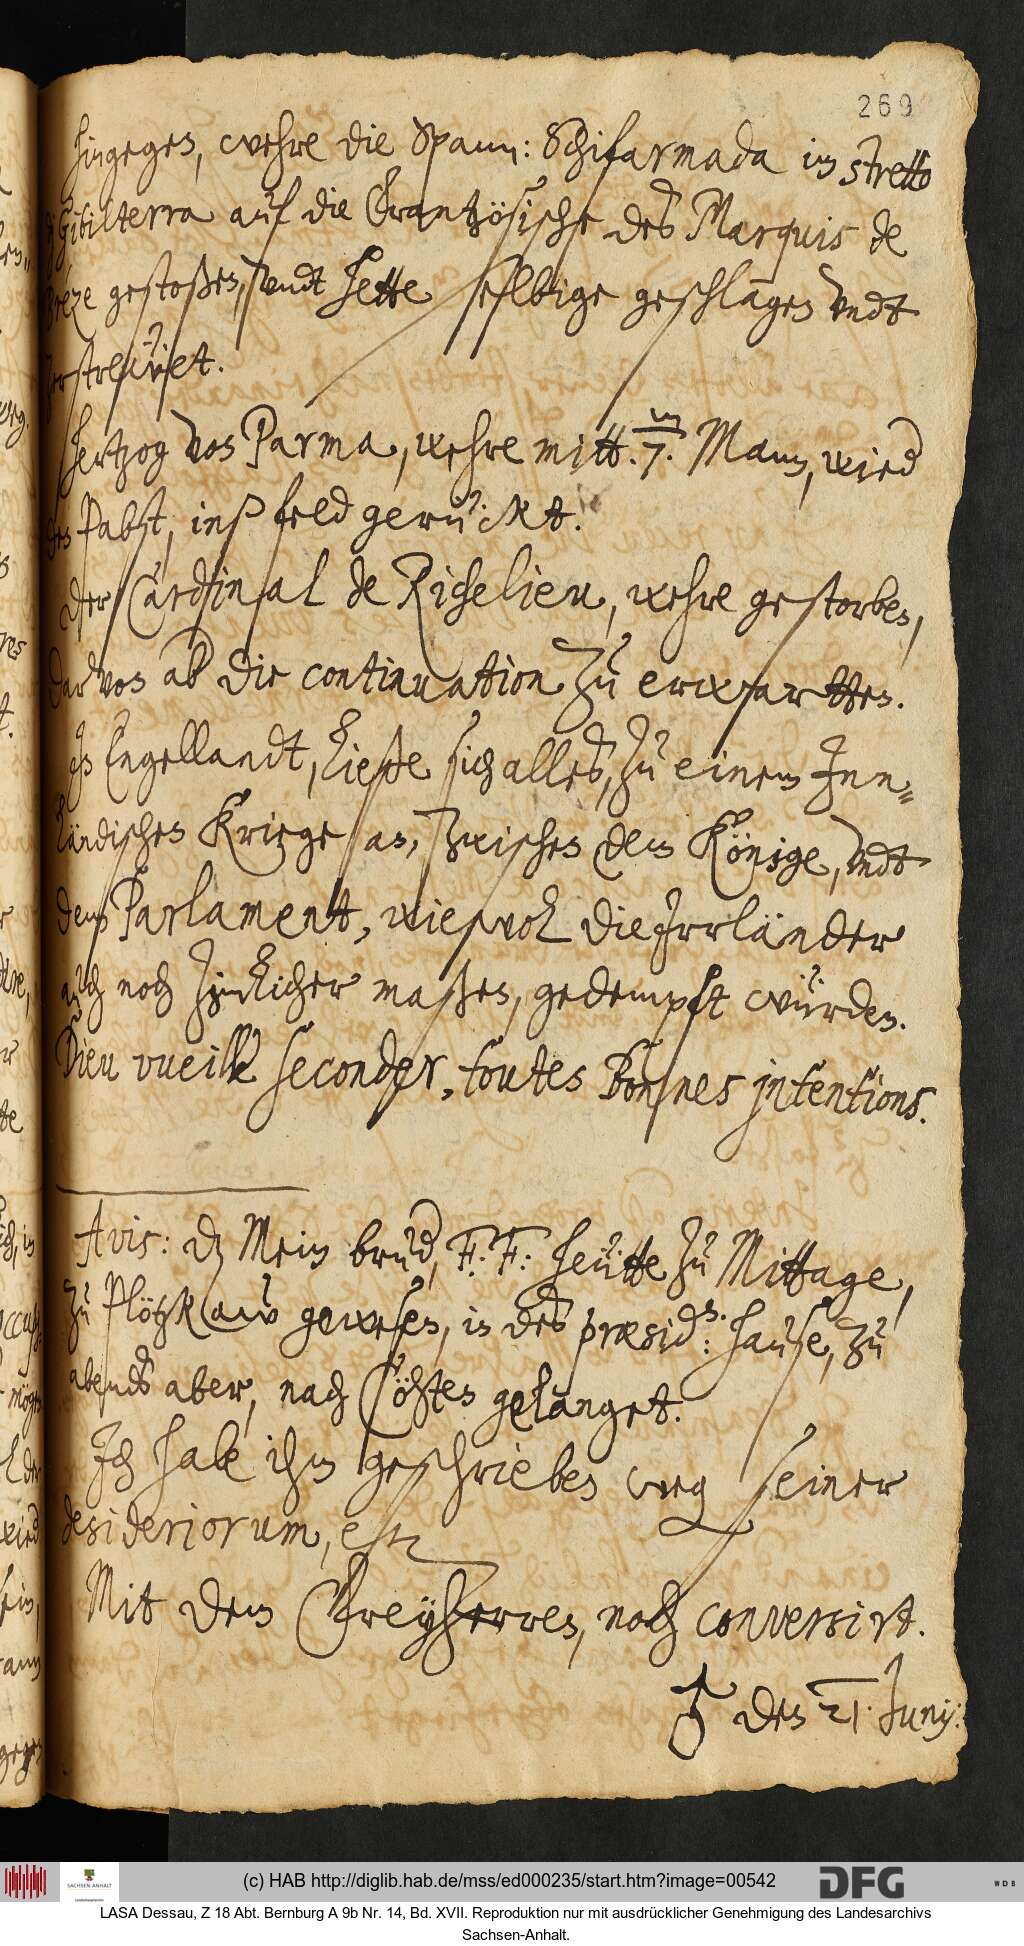 269
hingegen, wehre die Spann: Schifarmada im stretto
di Gibilterra auf die Frantzösische des Marquis de
Breze gestoßen, vndt hette selbige geschlagen vndt
zerstreẅet.
Hertzog von Parma, wehre mitt 7 m Mann, wied
den Pabst, inß feld gerückt.
Der Cardinal de Richelieu, wehre gestorben,
darvon ab die continuation zu erwartten.
Jn Engellandt, ließe sich alles, zu einem Jnn¬
ländischen Kriege an, zwischen dem Könige, vndt
dem Parlament, wiewol die Jrrländer
auch noch zimlicher maßen, gedempft würden.
Dieu vueille seconder, toutes bonnes intentions.
Avis: dz Mein brud, F. F: heütte zu Mittage,
zu Plötzkaw gewesen, in des præsid: hause, zu
abends aber, nach Cöhten gelanget.
Jch habe ihm geschrieben weg seiner
desideriorum, etc
Mit dem Freyherren, noch conversirt.
♂ den 21. Junij:
(c) HAB http://diglib.hab.de/mss/ed000235/start.htm?image=00542
SACHSEN-ANHALT
DFG
WDB
LASA Dessau, Z 18 Abt. Bernburg A 9b Nr. 14, Bd. XVII. Reproduktion nur mit ausdrücklicher Genehmigung des Landesarchivs
Sachsen-Anhalt.